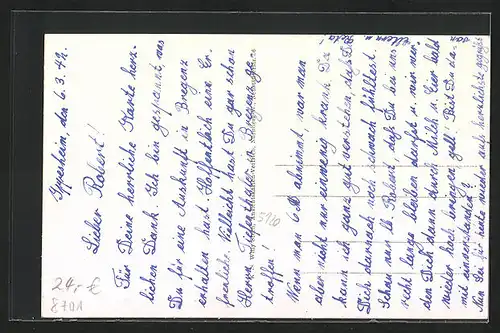 Ippesheim, den 6.3.42.
Lieber Robert!
Für Deine herrliche Karte herz-
lichen Dank. Ich bin gespannt was
Du für eine Auskunft in Bregenz
erhalten hast. Hoffentlich eine Er-
freuliche. Vielleicht hast Du gar schon
Herrn in Bregenz ge-
troffen!
Wenn man 6 abnimmt, war man
aber nicht nur ein wenig krank. Da
kann ich ganz gut verstehen, daß Du
Dich darnach noch schwach fühltest.
Schau nur lb. Robert, daß Du bei uns
recht lange bleiben darfst u. wir wer-
den Dich dann durch Milch u. Eier bald
wieder hoch bringen gell! Bist Du da-
mit einverstanden?
Nun sei für heute wieder aufs herzlichste gegrüßt
von
Eltern u.
!
5920
24,- €
8701